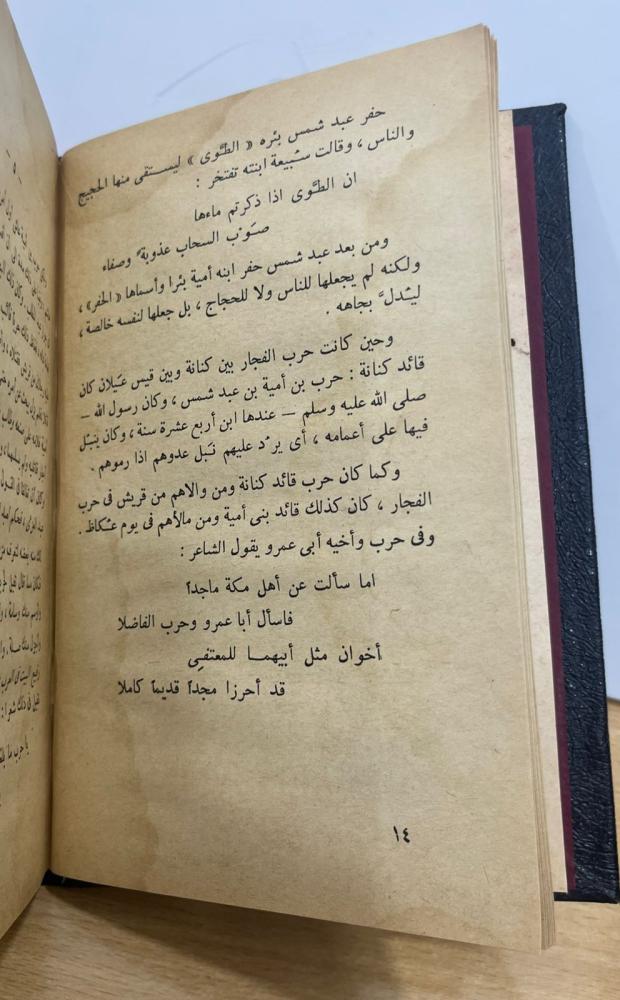 حفر عبد شمس بئره « الطَّوى » ليستقى منها الحجيج
والناس ، وقالت سُبيعة ابنته تفتخر :
ان الطَّوى اذا ذكرتم ماءها
صَوْب السحاب عذوبةً وصفاء
ومن بعد عبد شمس حفر ابنه أمية بئرا وأسماها « الحفر» ،
ولكنه لم يجعلها للناس ولا للحجاج ، بل جعلها لنفسه خالصة ،
ليُدلَّ بجاهه .
وحين كانت حرب الفجار بين كنانة وبين قيس عَيلان كان
قائد كنانة : حرب بن أمية بن عبد شمس ، وكان رسول الله —
صلى الله عليه وسلم — عندها ابن أربع عشرة سنة ، وكان ينبُل
فيها على أعمامه ، أى يرُد عليهم نَبل عدوهم اذا رموهم .
وكما كان حرب قائد كنانة ومن والاهم من قريش فى حرب
الفجار ، كان كذلك قائد بنى أمية ومن مالأهم فى يوم عُكاظ .
وفى حرب وأخيه أبى عمرو يقول الشاعر :
اما سألت عن أهل مكة ماجداً
فاسأل أبا عمرو وحرب الفاضلا
أخوان مثل أبيهما للمعتفى
قد أحرزا مجداً قديماً كاملا
١٤